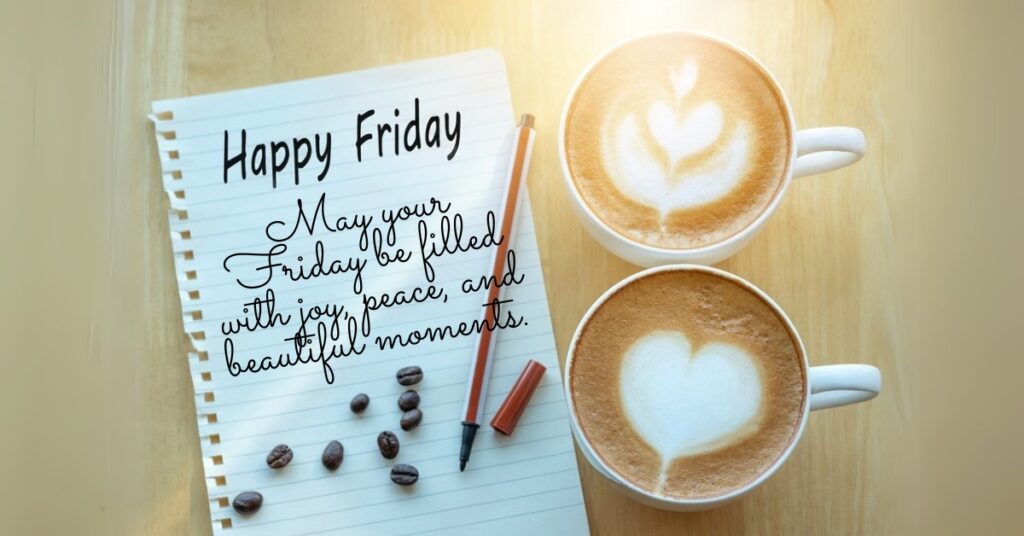 Happy Friday
May your
Friday be filled
with joy, peace, and
beautiful moments.